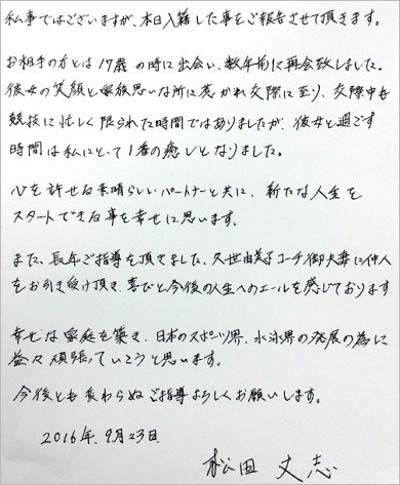 私事ではございますが、本日入籍した事をご報告させて頂きます。
お相手の方とは17歳の時に出会い、数年前に再会致しました。
彼女の笑顔と家族思いな所に惹かれ交際に至り、交際中も
競技に忙しく限られた時間ではありましたが、彼女と過ごす
時間は私にとって1番の癒しとなりました。
心を許せる素晴らしいパートナーと共に、新たな人生を
スタートできる事を幸せに思います。
また、長年ご指導を頂きました、久世由美子コーチ御夫妻に仲人
をお引き受け頂き、喜びと今後の人生へのエールを感じております
幸せな家庭を築き、日本のスポーツ界、水泳界の発展の為に
益々頑張っていこうと思います。
今後とも変わらぬご指導よろしくお願いします。
2016年、9月23日
松田丈志